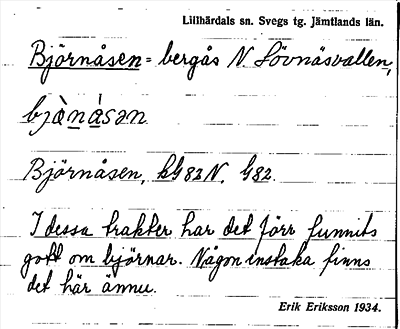 Lillhärdals sn. Svegs tg. Jämtlands län.
Björnåsen = bergås N. Lövnäsvallen,
bjə̀ṇásən
Björnåsen, kG 83 N, G82.
I dessa trakter har det förr funnits
gott om björnar. Någon enstaka finns
det här ännu.
Erik Eriksson 1934.